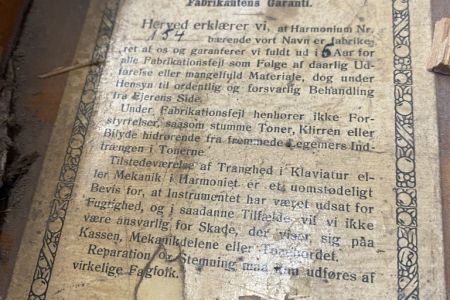 Fabrikantens Garanti.
Herved erklærer vi, at Harmonium Nr.
154 bærende vort Navn er fabrike-
ret af os og garanterer vi fuldt ud i 5 Aar for
alle Fabrikationsfejl som Følge af daarlig Ud-
førelse eller mangelfuld Materiale, dog under
Hensyn til ordentlig og forsvarlig Behandling
fra Ejerens Side.
Under Fabrikationsfejl henhører ikke For-
styrrelser, saasom stumme Toner, Klirren eller
Bilyde hidrørende fra fremmede Legemers Ind-
trængen i Tonerne.
Tilstedeværelse af Tranghed i Klaviatur el-
ler Mekanik i Harmoniet er et uomstødeligt
Bevis for, at Instrumentet har været udsat for
Fugtighed, og i saadanne Tilfælde vil vi ikke
være ansvarlig for Skade, der viser sig paa
Kassen, Mekanikdelene eller
Reparation og Stemning maa kun udføres af
virkelige Fagfolk.